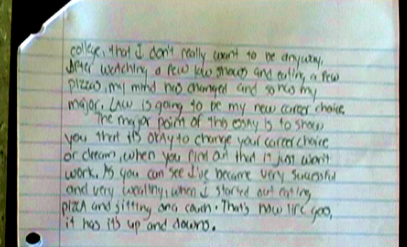 college, that I don't really want to be anyway.
After watching a few law shows and eating a few
pizzas, my mind has changed and so has my
major. Law is going to be my new career choice.
The major point of this essay is to show
you that it's okay to change your career choice
or dream, when you find out that it just won't
work. As you can see I've became very successful
and very wealthy, when I started out eating
pizza and sitting on a couch. That's how life goes,
it has it's up and downs.